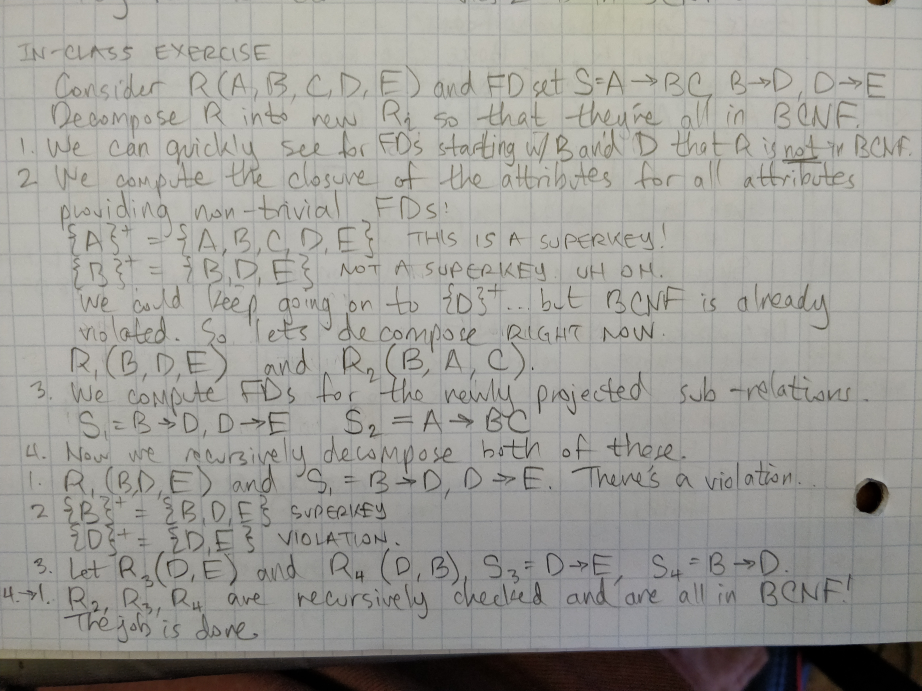 IN-CLASS EXERCISE
Consider R(A, B, C, D, E) and FD set S=A→BC, B→D, D→E
Decompose R into new Ri so that they're all in BCNF.
1. We can quickly see for FD's starting w/ B and D that R is not in BCNF.
2 We compute the closure of the attributes for all attributes
providing non-trivial FDs:
{A}+ = {A, B, C, D, E} THIS IS A SUPERKEY!
{B}+ = {B, D, E} NOT A SUPERKEY. UH OH.
We could keep going on to {D}+...but BCNF is already
violated. So let's decompose RIGHT NOW.
R1(B, D, E) and R2(B, A, C).
3. We compute FDs for the newly projected sub-relations.
S1=B→D, D→E S2=A→BC
4. Now we recursively decompose both of these.
1. R1(B,D,E) and S1=B→D, D→E. There's a violation..
2 {B}+ = {B, D, E} SUPERKEY
{D}+ = {D, E} VIOLATION.
3. Let R3(D, E) and R4(D, B), S3=D→E, S4=B→D.
4.→1. R2, R3, R4 are recursively checked and are all in BCNF!
The job is done.